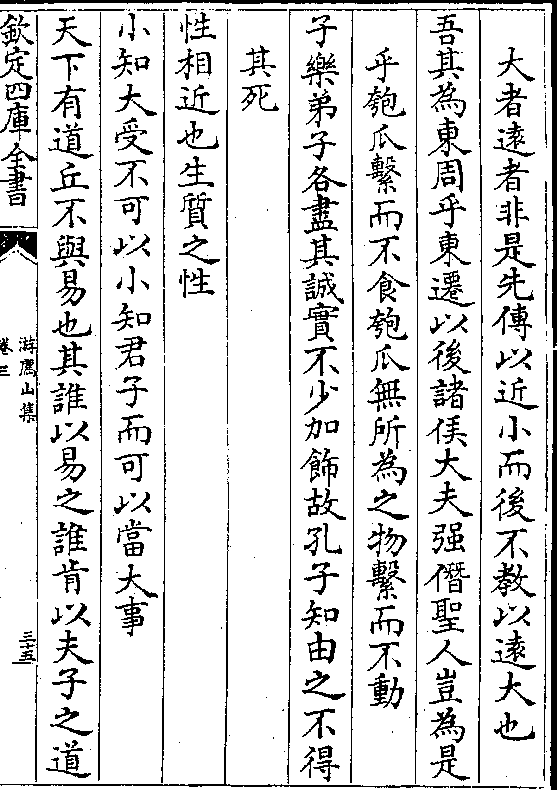 大者遠者非是先傳以近小而後不教以遠大也
吾其為東周乎東遷以後諸侯大夫强僭聖人豈為是
乎匏瓜繫而不食匏瓜無所為之物繫而不動
子樂弟子各盡其誠實不少加飾故孔子知由之不得
其死
性相近也生質之性
小知大受不可以小知君子而可以當大事
天下有道丘不與易也其誰以易之誰肯以夫子之道
欽定四庫全書
游廌山集
卷三
三十五